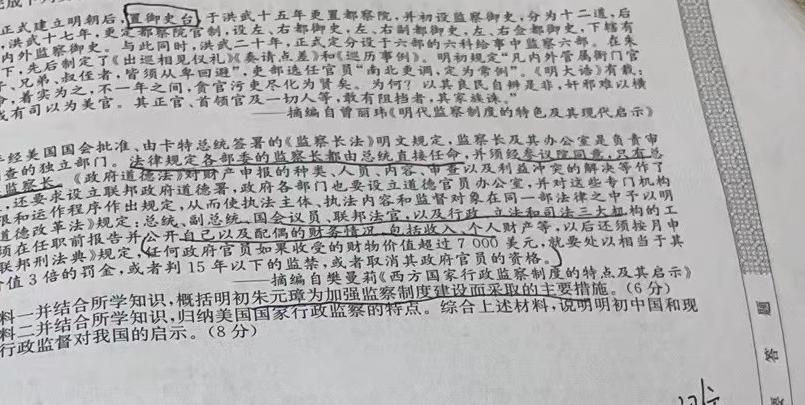 正式建立明朝后,置御史台,于洪武十五年更置都察院,并初设监察御史,分为十二道,后
洪武十七年,更定都察院官制,设左、右都御史,左、右副都御史,左、右佥都御史,下辖有
内外监察御史。与此同时,洪武二十年,正式定分设于六部的六科给事中监察六部。在朱
下,先后制定了《出巡相见仪礼》《奏请点差》和《巡历事例》。明初规定“凡内外管属衙门官
子、兄弟、叔侄者,皆须从卑回避”,吏部选任官员“南北更调,定为常例”。《明大诰》有载:
着实为之,不一年之间,贪官污吏尽化为贤矣。为何?以其良民自辨是非,奸邪难以横
或有司以为美官。其正官、首领官及一切人等,敢有阻挡者,其家族诛。”
——摘编自曾丽玮《明代监察制度的特色及其现代启示》
经美国国会批准、由卡特总统签署的《监察长法》明文规定,监察长及其办公室是负责审
查的独立部门。法律规定各部委的监察长都由总统直接任命,并须经参议院同意,只有总
监察长。《政府道德法》对财产申报的种类、人员、内容、审查以及利益冲突的解决等作了
,还要求设立联邦政府道德署,政府各部门也要设立道德官员办公室,并对这些专门机构
限和运作程序作出规定,从而使执法主体、执法内容和监督对象在同一部法律之中予以明
道德改革法》规定:总统、副总统、国会议员、联邦法官,以及行政、立法和司法三大机构的工
须在任职前报告并公开自己以及配偶的财务情况,包括收入、个人财产等,以后还须按月申
联邦刑法典》规定,任何政府官员如果收受的财物价值超过7 000美元,就要处以相当于其
值3倍的罚金,或者判15年以下的监禁,或者取消其政府官员的资格。
——摘编自樊曼莉《西方国家行政监察制度的特点及其启示》
料一并结合所学知识,概括明初朱元璋为加强监察制度建设而采取的主要措施。(6分)
料二并结合所学知识,归纳美国国家行政监察的特点。综合上述材料,说明明初中国和现
行政监督对我国的启示。(8分)
题
答